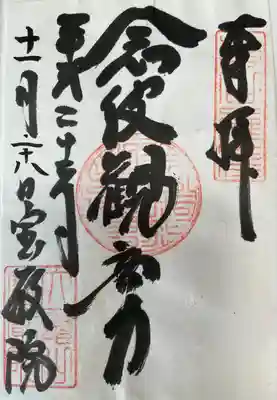 奉拝
念彼観音力
平成二十
十一月二十八日 宝厳院